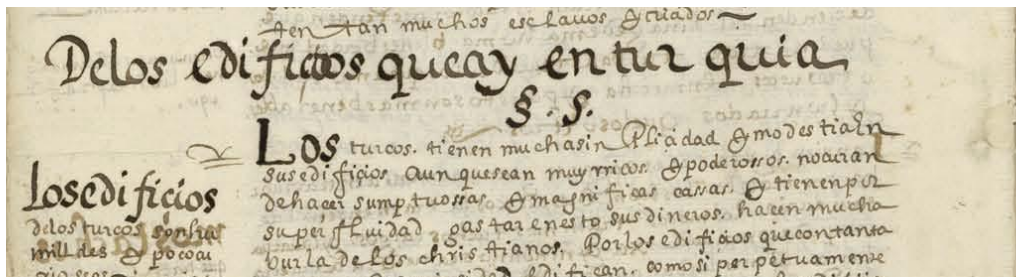 tentan muchos esclavos & criados
Delos edificios que ay en turquia
§. 5.
Los turcos. tienen mucha sin Plicidad & modestia En
sus edificios Aunque sean muy rricos. & poderossos. no curan
de hacer sumptuossas. & magnificas cassas. & tienen por
superfluidad gastar en esto sus dineros. hacen mucha
burla de los christianos. Por los edificios que con tanta
edifican. como si perpetuamente
Los edificios
delos turcos son hu
milldes & poco cu